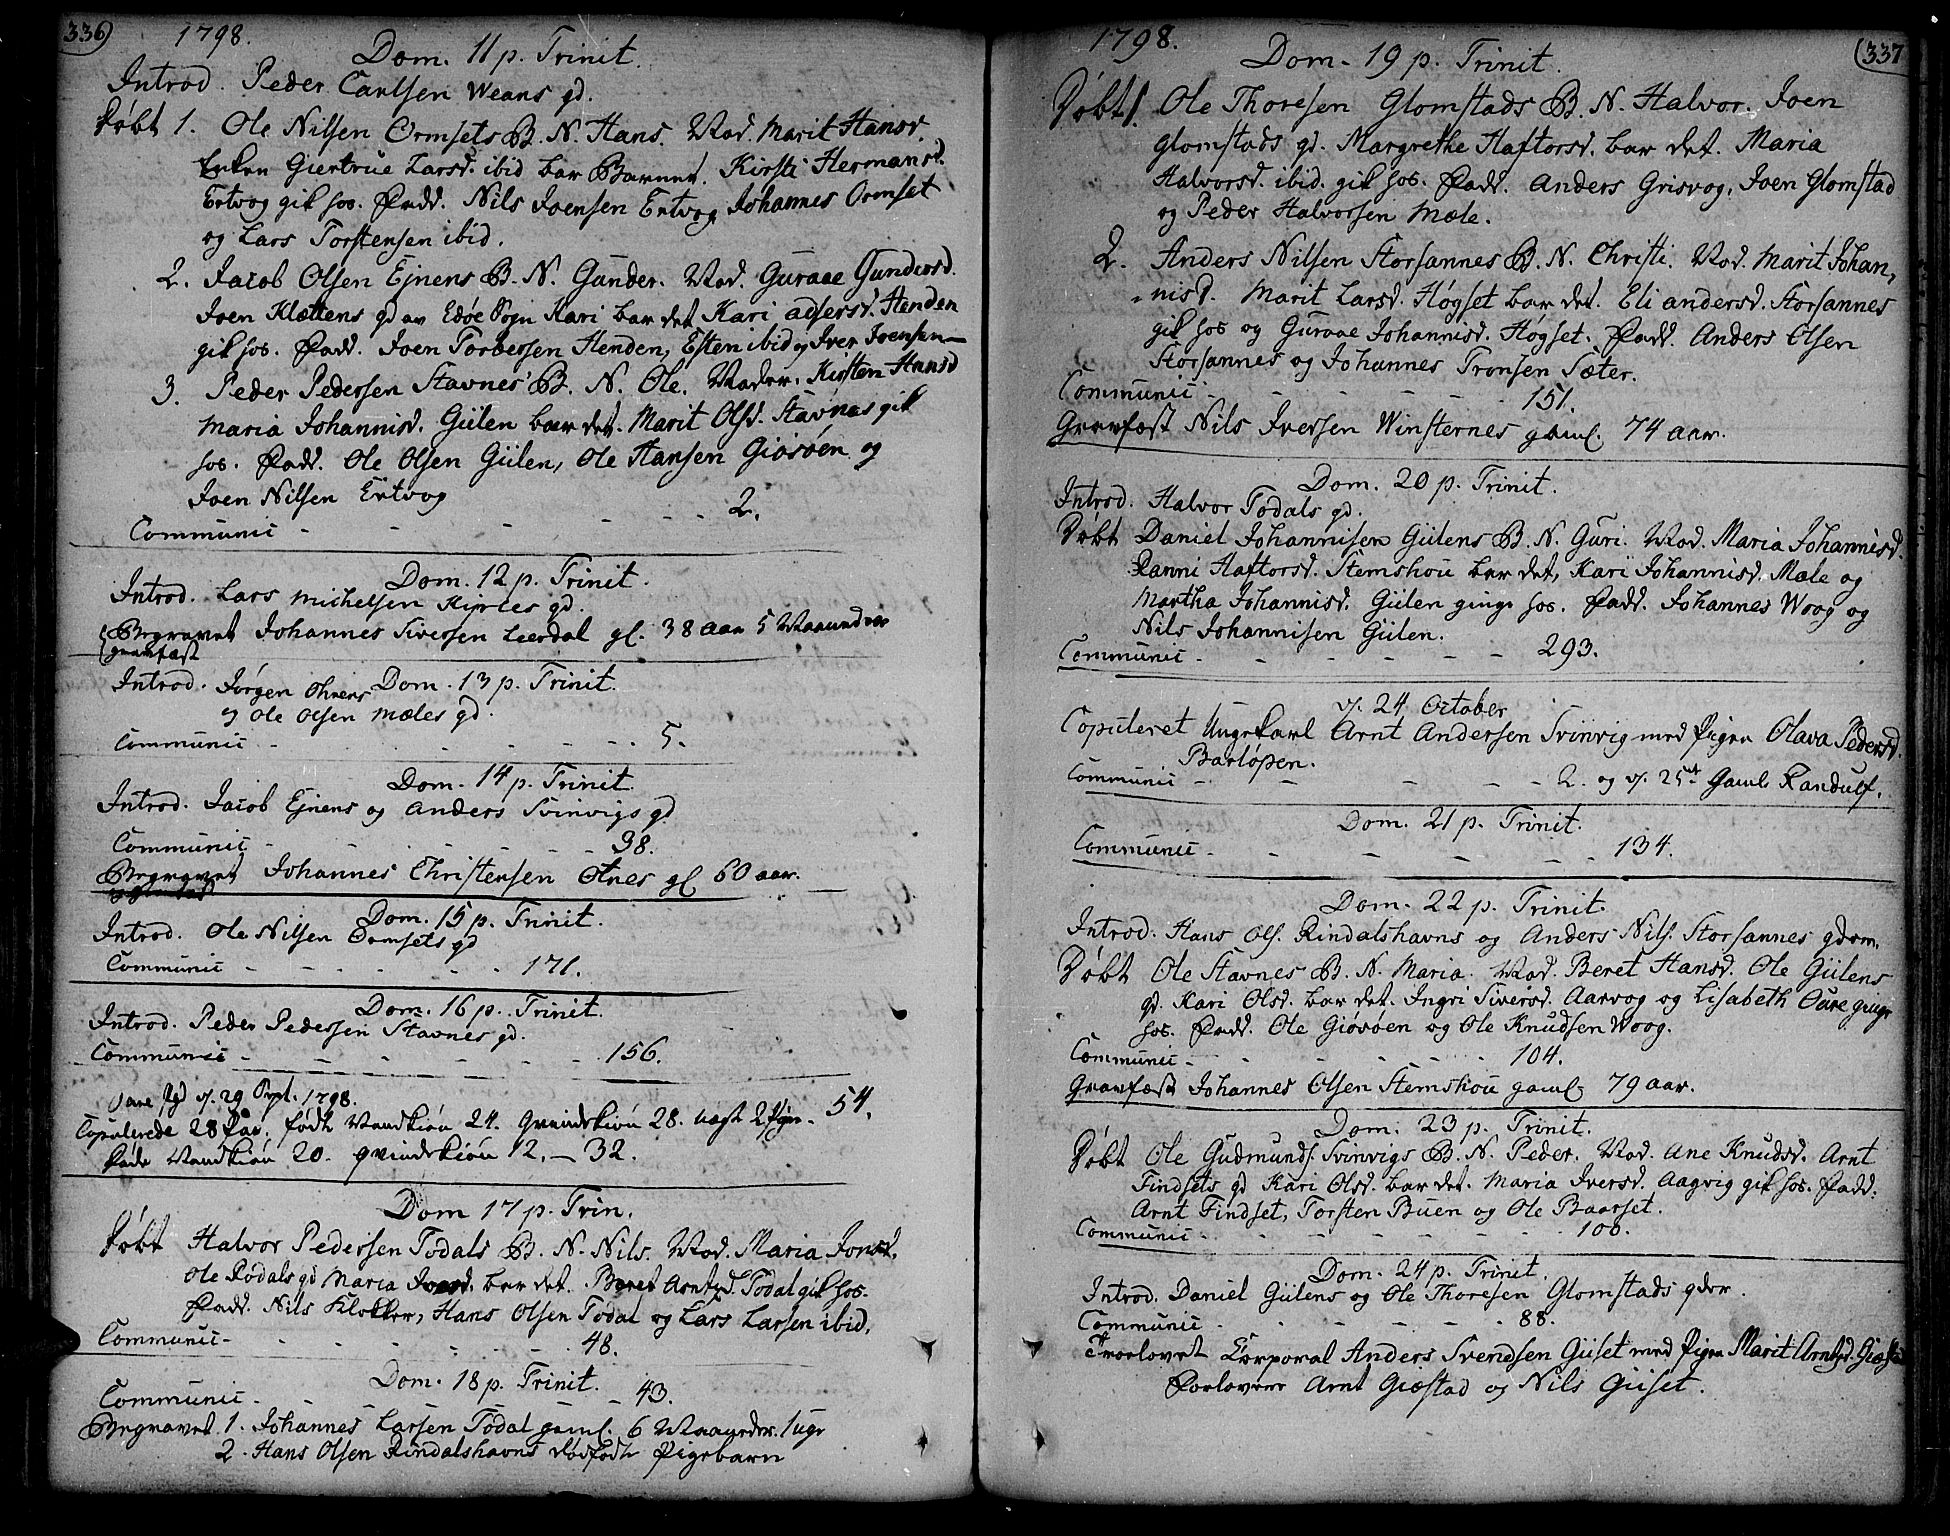 336) 1798.
Dom. 11 p. Trinit.
Introd. Peder Carlsen Weans gd.
Døbt 1. Ole Nilsen Ormsets B. N. Hans. Mod. Marit Hansd.
Enken Giertrue Larsd. ibid bar Barnet. Kirsti Hermansd.
Ertvog gik hos. Fadd. Nils Joensen Ertvog Johannes Ormset
og Lars Torstensen ibid.
2. Jacob Olsen Ejnens B. N. Gunder. Mod. Guraae Gundersd.
Joen Klættens gd av Edøe Sogn Kari bar det Kari Henden
gik hos. Fadd. Joen Torbersen Henden, Esten ibid og Iver Joensen
3. Peder Pedersen Stavnes B. N. Ole. Moder. Kirsten Hansd
Maria Johannisd. Gülen bar det. Marit Olsd. Stavnes gik
hos. Fadd. Ole Olsen Gülen, Ole Hansen Giøsøen og
Joen Nilsen Ertvog
Communic - - - - - 2.
Dom. 12 p. Trinit.
Introd. Lars Michelsen gd.
Begravet Johannes Siversen Leerdal gl. 38 aar 5 Maaneder
gravfæst
Dom. 13 p. Trinit.
Introd. Jørgen
og Ole Olsen Mæles gd.
Communic - - - - - 5.
Dom. 14 p. Trinit.
Introd. Jacob Ejnens og Anders Svinvigs gd
Communic - - - - - 38.
Begravet Johannes Christensen Otnes gl 60 aar.
Dom. 15 p. Trinit.
Introd. Ole Nilsen Ormsets gd
Communic - - - - - 171.
Dom. 16 p. Trinit.
Introd. Peder Pedersen Stavnes gd.
Communic - - - - - 156.
d. 29 Sept. 1798.
Copulerede 28 Par. født Mandkiøn 24. Qvindekiøn 28. 54.
Døde Mandkiøn 20. qvindekiøn 12. - 32.
Dom 17 p. Trin.
Døbt Halvor Pedersen Todals B. N. Nils. Mod. Maria Jonsd.
Ole Rødals gd Maria bar det. Beret Arntsd. Todal gik hos.
Fadd. Nils Klokker, Hans Olsen Todal og Lars Larsen ibid.
Communic - - - - - 48.
Dom. 18 p. Trinit.
Communic - - - - - 43.
Begravet 1. Johannes Larsen Todal gaml. 6 Maaneder 1 uge
2. Hans Olsen Rindalshavns dødfødt Pigebarn
1798. (337
Dom. 19 p. Trinit.
Døbt 1. Ole Thoresen Glomstads B. N. Halvor. Joen
Glomstads gd. Margrethe Haftorsd. bar det. Maria
Halvorsd. ibid. gik hos. Fadd. Anders Grisvog, Joen Glomstad
og Peder Halvorsen Mæle.
2. Anders Nilsen Storsannes B. N. Christi. Mod. Marit Johan,
nisd. Marit Larsd. Høgset bar det. Eli Andersd. Storsannes
gik hos og Guraae Johannisd. Høgset. Fadd. Anders Olsen
Storsannes og Johannes Tronsen Sæter.
Communic - - - - - 151.
Gravfæst Nils Iversen Winsternes gaml. 74 aar.
Dom. 20 p. Trinit.
Introd. Halvor Todals gd.
Døbt Daniel Johannisen Gülens B. N. Guri. Mod. Maria Johannisd.
Ranni Haftorsd. Stemshou bar det, Kari Johannisd. Mæle og
Martha Johannisd. Gülen ginge hos. Fadd. Johannes Woog og
Nils Johannisen Gülen.
Communic - - - - - 293.
d. 24 October
Copuleret Ungekarl Arnt Andersen Svinvig med Pigen Olava Pedersd.
Barløpen.
Communic - - - - - 2. og d. 25de Gaml. Randulf.
Dom. 21 p. Trinit.
Communic - - - - - 134.
Dom. 22 p. Trinit.
Introd. Hans Ols. Rindalshavns og Anders Nils. Storsannes gdom.
Døbt Ole Stavnes B. N. Maria. Mod. Beret Hansd. Ole Gülens
gd. Kari Olsd. bar det. Ingri Siversd. Aarvog og Lisabeth Oure ginge
hos. Fadd. Ole Giøsøen og Ole Knudsen Woog.
Communic - - - - - 104.
Gravfæst Johannes Olsen Stemshou gaml. 79 aar.
Dom. 23 p. Trinit.
Døbt Ole Gudmunds. Svinvigs B. N. Peder. Mod. Ane Knudsd. Arnt
Findsets gd Kari Olsd. bar det. Maria Iversd. Aagvig gik hos. Fadd.
Arnt Findset, Torsten Buen og Ole Baarset.
Communic - - - - - 100.
Dom. 24 p. Trinit.
Introd. Daniel Gülens og Ole Thoresen Glomstads qdor.
Communic - - - - - 88.
Troelovet Corporal Anders Svendsen Güset med Pigen Marit Arntsd. Giæstad
Forlovere Arnt Giæstad og Nils Güset.